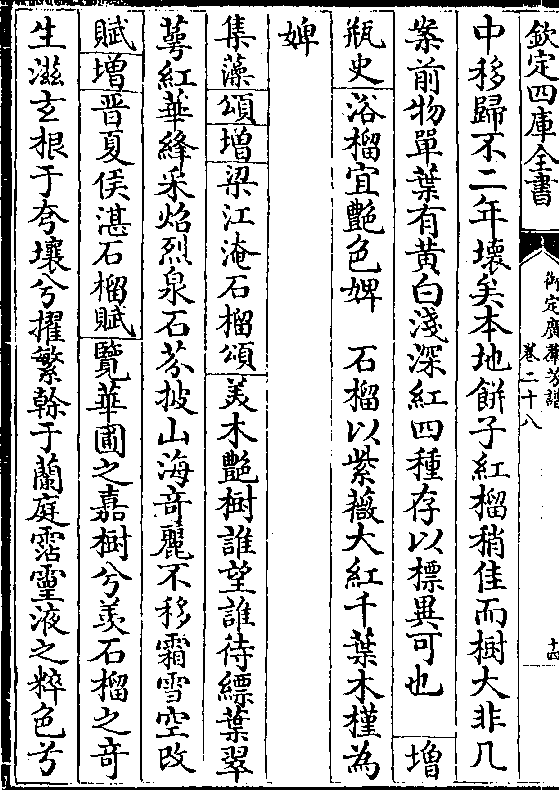 欽定四庫全書
御定廣羣芳譜
卷二十八
十四
中移歸不二年壞矣本地餅子紅榴稍佳而樹大非几
案前物單葉有黃白淺深紅四種存以標異可也 增
瓶史 浴榴宜艷色婢 石榴以紫薇大紅千葉木槿為
婢
集藻 頌 增 梁江淹石榴頌 美木艷樹誰望誰待縹葉翠
萼紅華絳采炤烈泉石芬披山海奇麗不移霜雪空改
賦 增 晉夏侯湛石榴賦 覽華圃之嘉樹兮羨石榴之奇
生滋玄根于夸壤兮擢繁榦于蘭庭霑靈液之粹色兮